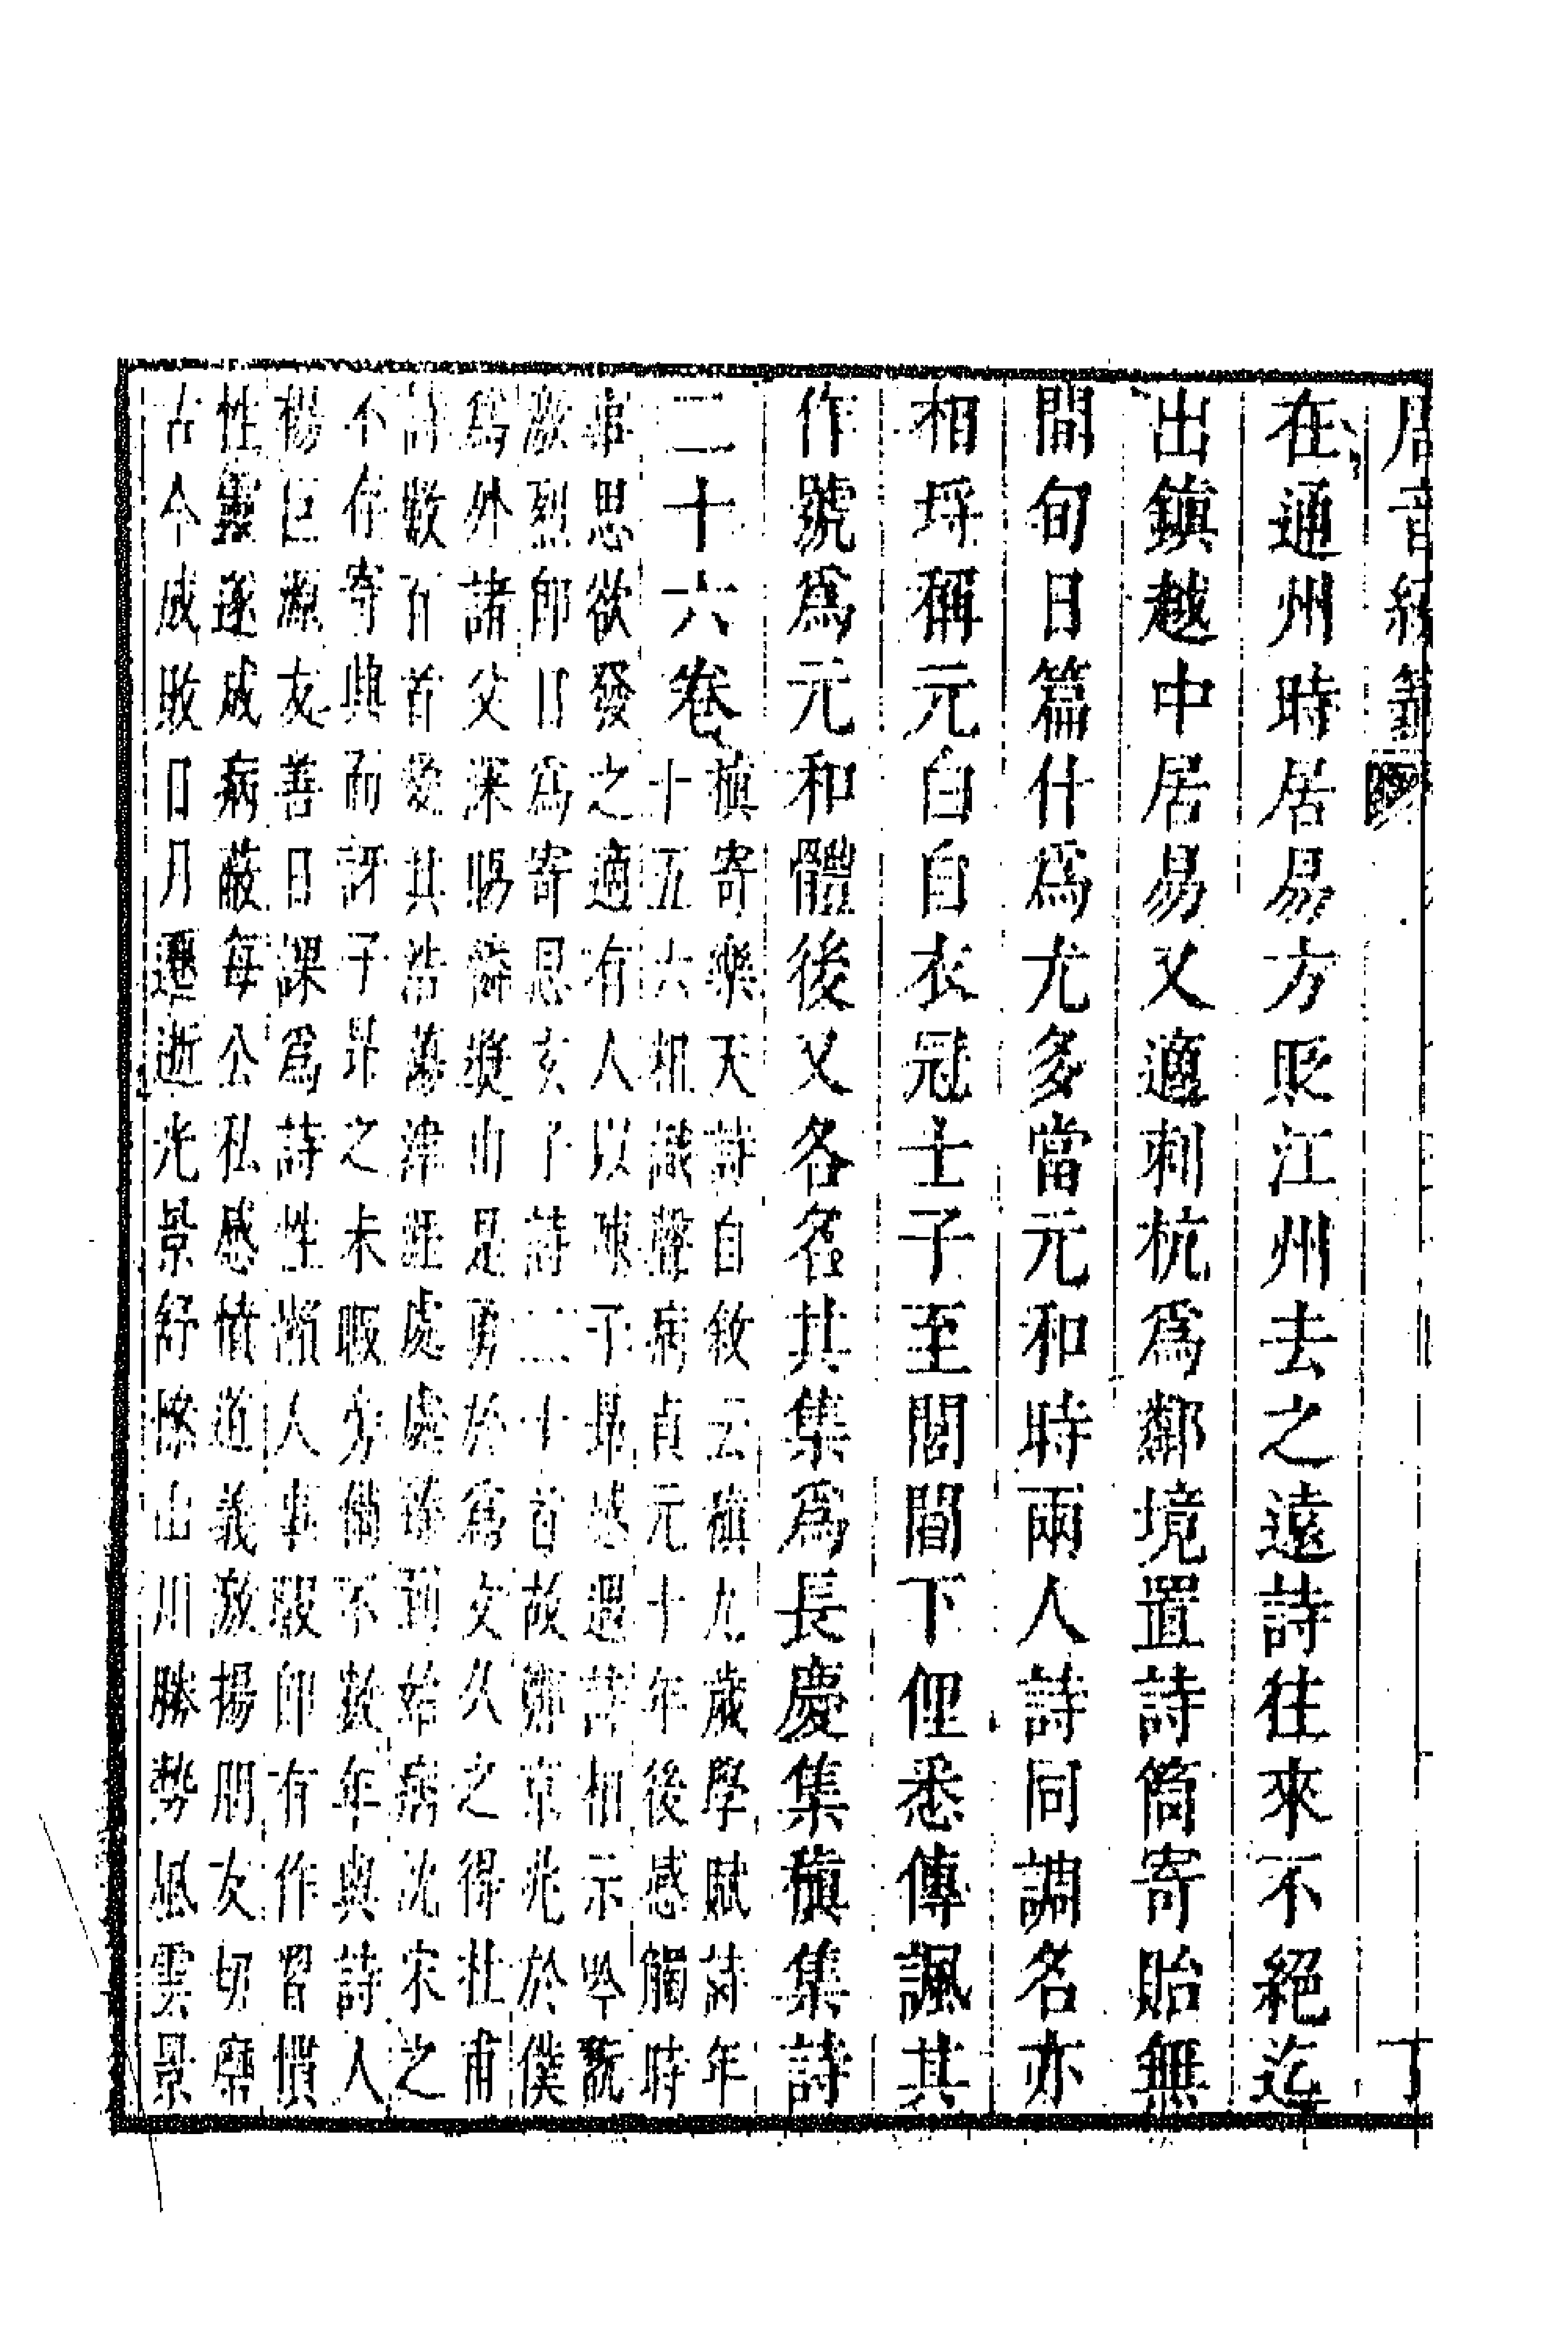 唐音統籤
在通州時居易方貶江州去之遠詩往來不絕迄
出鎮越中居易又適刺杭爲鄰境置詩筒寄貽無
間旬日篇什爲尤多當元和時兩人詩同調名亦
相埒稱元白自衣冠士子至閭閻下俚悉傳諷其
作號爲元和體後又各名其集爲長慶集稹集詩
二十六卷
稹寄樂天詩自敘云稹九歲學賦詩年
十五六粗識聲病貞元十年後感觸時
事思欲發之適有人以陳子昂感遇詩相示吟翫
激烈卽日爲寄思玄子詩二十首故鄭京兆於僕
爲外諸父深賜憐奬由是勇於爲文久之得杜甫
詩數百首愛其浩蕩津涯處處臻到始病沈宋之
不存寄興而訝子昂之未暇旁備不數年與詩人
楊巨源友善日課爲詩性懶人事暇卽有作習慣
性靈遂成病蔽每公私感憤道義激揚朋友切磨
古今成敗日月遷逝光景舒慘山川勝勢風雲景